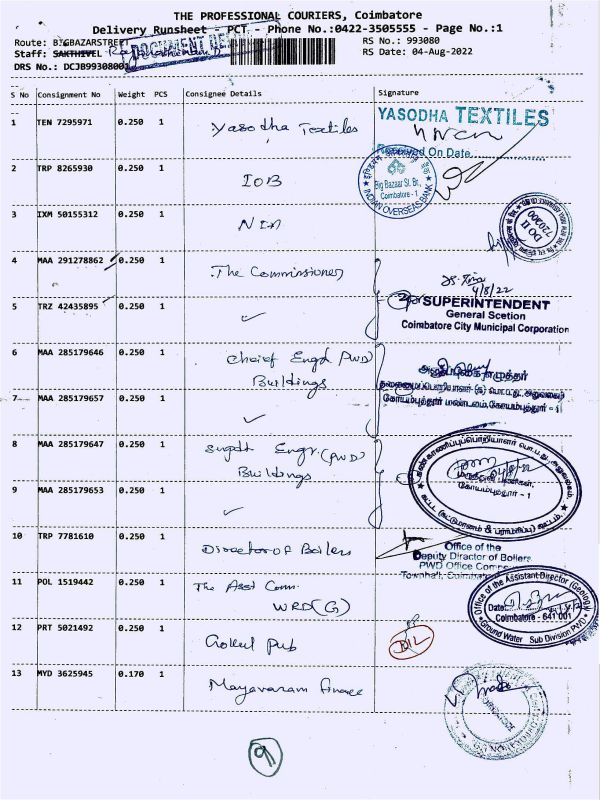 THE PROFESSIONAL COURIERS, Coimbatore
Delivery Runsheet - PCT - Phone No.:0422-3505555 - Page No.:1
Route: BIGBAZARSTREET RS No.: 993080
Staff: SAKTHIVEL RS Date: 04-Aug-2022
DOCUMENT
DRS No.: DCJB99308001
S No Consignment No Weight PCS Consignee Details Signature
1 TEN 7295971 0.250 1 Yasodha Textiles
YASODHA TEXTILES
Received On Date
2 TRP 8265930 0.250 1 IOB
Big Bazaar St. Br.,
Coimbatore - 1
INDIAN OVERSEAS BANK
3 IXM 50155312 0.250 1 NIA
DO II
720200
4 MAA 291278862 0.250 1 The Commissioner
4/8/22
5 TRZ 42435895 0.250 1 ✓
SUPERINTENDENT
General Scetion
Coimbatore City Municipal Corporation
6 MAA 285179646 0.250 1 Cheief Engd PWD
Buildings
7 MAA 285179657 0.250 1 ✓
கோயம்புத்தூர் மண்டலம், கோயம்புத்தூர் - 1
8 MAA 285179647 0.250 1 Supdt Engr. (PWD)
Buildings
9 MAA 285179653 0.250 1 ✓
கோயம்புத்தூர் - 1
10 TRP 7781610 0.250 1 Director of Boilers
Office of the
Deputy Director of Boilers
PWD Office
11 POL 1519442 0.250 1 The Asst Comm.
WRD (G)
Office of the Assistant Director (Geology)
Date:
Coimbatore - 641 001
Ground Water Sub Division PWD
12 PRT 5021492 0.250 1 Gokul Pub
DIL
13 MYD 3625945 0.170 1 Mayavaram Finance
9